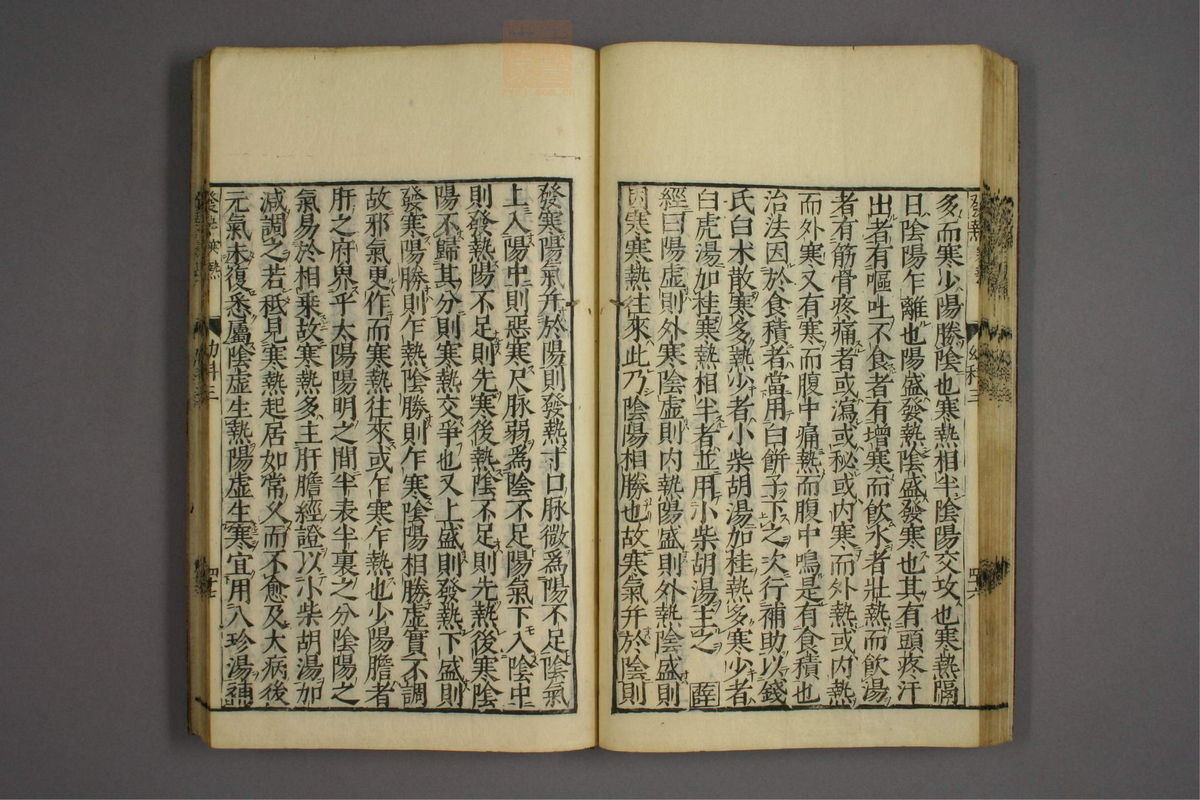 多而寒少陽勝陰也寒熱相半陰陽交攻也寒熱隔
日陰陽乍離也陽盛發熱陰盛發寒也其有頭疼汗
出者有嘔吐不食者有增寒而飲水者壯熱而飲湯
者有筋骨疼痛者或瀉或秘或内寒而外熱或内熱
而外寒又有寒而腹中痛熱而腹中鳴是有食積也
治法因於食積者當用白餅子下之次行補助以錢
氏白术散寒多熱少者小柴胡湯加桂熱多寒少者
白虎湯加桂寒熱相半者並用小柴胡湯主之
經曰陽虛則外寒陰虛則内熱陽盛則外熱陰盛則
内寒寒熱往來此乃陰陽相勝也故寒氣并於陰則
發寒陽氣并於陽則發熱寸口脉微爲陽不足陰氣
上入陽中則惡寒尺脉弱爲陰不足陽氣下入陰中
則發熱陽不足則先寒後熱陰不足則先熱後寒陰
陽不歸其分則寒熱交爭也又上盛則發熱下盛則
發寒陽勝則乍熱陰勝則乍寒陰陽相勝虛實不調
故邪氣更作而寒熱往來或乍寒乍熱也少陽膽者
肝之府界乎太陽陽明之間半表半裏之分陰陽之
氣易於相乘故寒熱多主肝膽經證以小柴胡湯加
減調之若秪見寒熱起居如常久而不愈及大病後
元氣未復悉屬陰虛生熱陽虛生寒宜用八珍湯補
幼科三
四十七